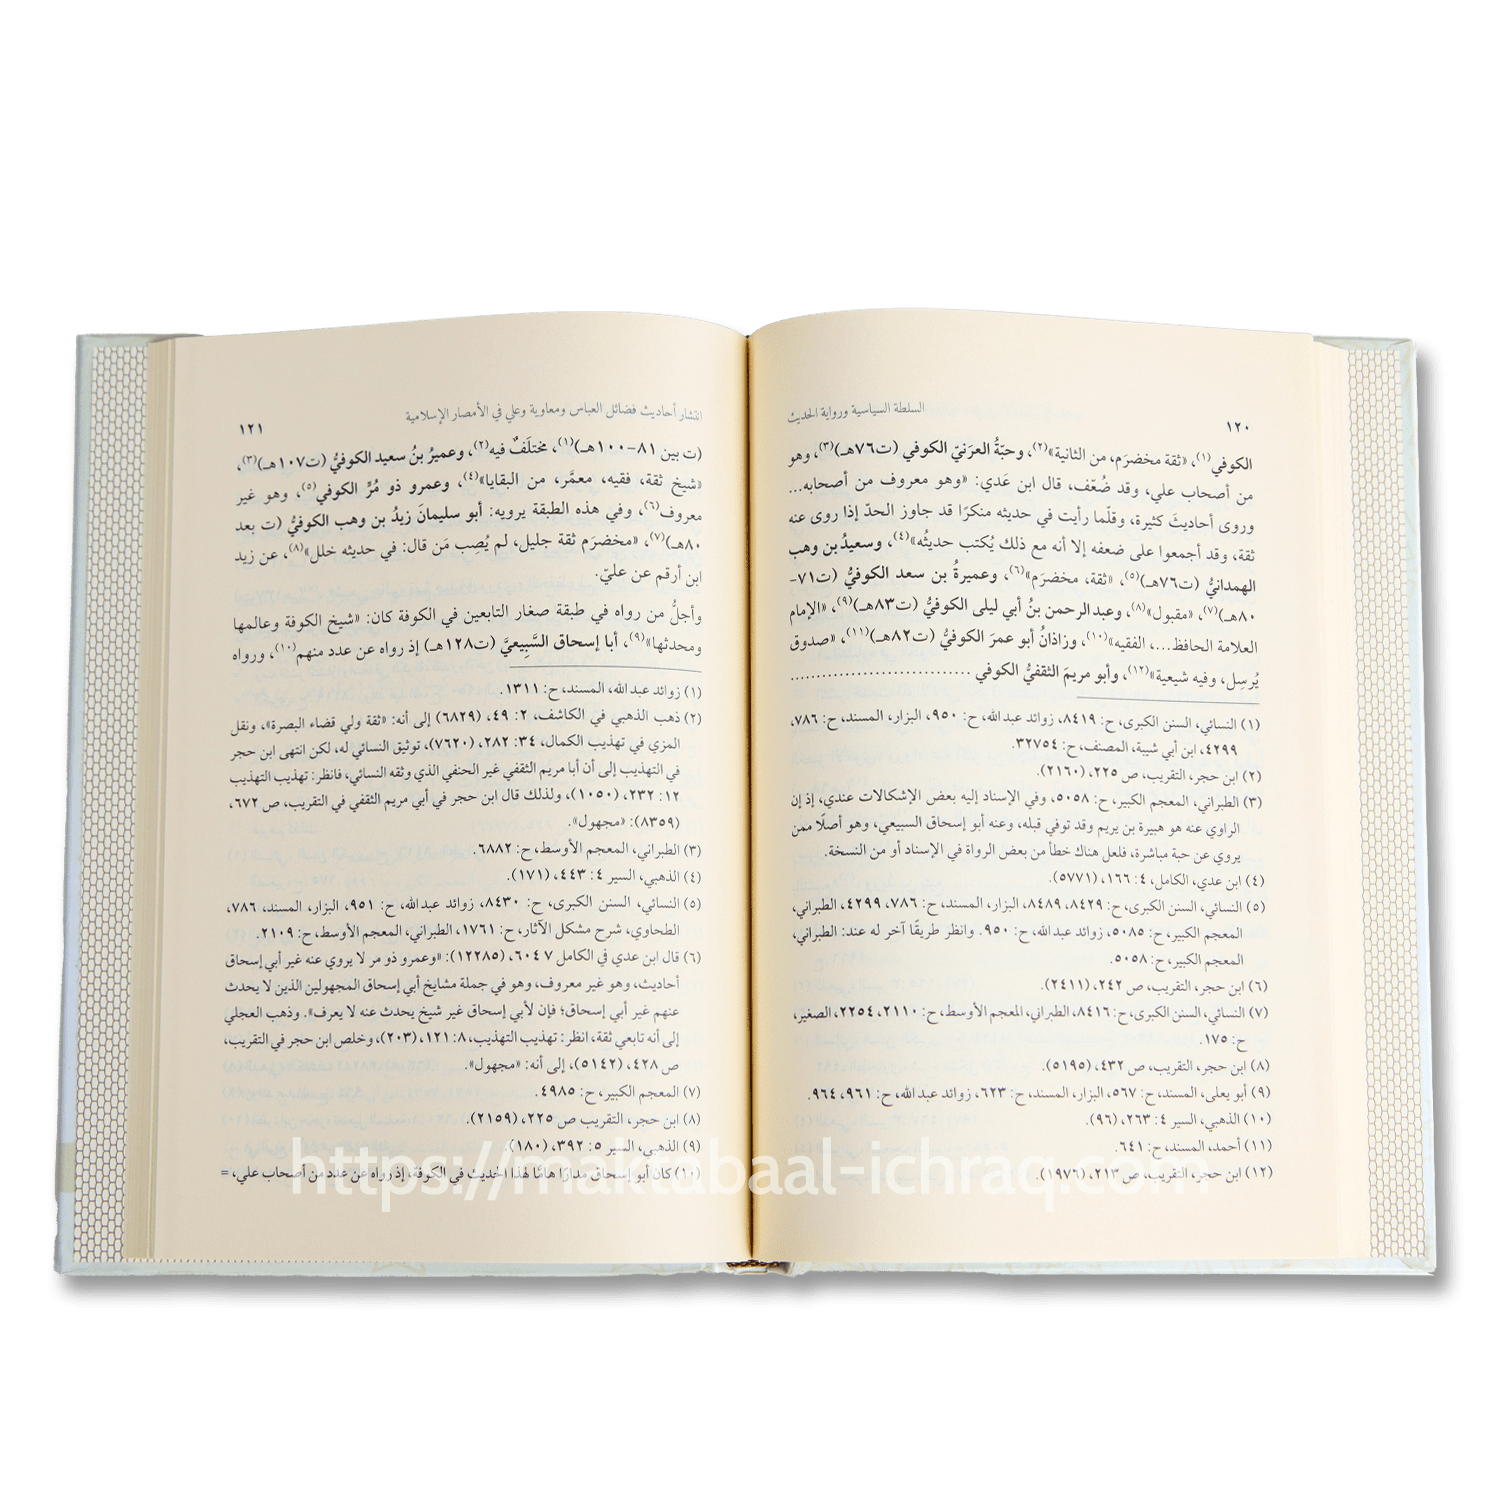 السلطة السياسية ورواية الحديث
١٢٠
الكوفي(١)، «ثقة مخضرَم، من الثانية»(٢)، وحبّةُ العرَنيّ الكوفي (ت٧٦هـ)(٣)، وهو
من أصحاب علي، وقد ضُعّف، قال ابن عَدي: «وهو معروف من أصحابه...
وروى أحاديثَ كثيرة، وقلّما رأيت في حديثه منكرًا قد جاوز الحدّ إذا روى عنه
ثقة، وقد أجمعوا على ضعفه إلا أنه مع ذلك يُكتب حديثُه»(٤)، وسعيدُ بن وهب
الهمدانيُّ (ت٧٦هـ)(٥)، «ثقة، مخضرَم»(٦)، وعميرةُ بن سعد الكوفيُّ (ت٧١-
٨٠هـ)(٧)، «مقبول»(٨)، وعبد الرحمن بنُ أبي ليلى الكوفيُّ (ت٨٣هـ)(٩)، «الإمام
العلامة الحافظ...، الفقيه»(١٠)، وزاذانُ أبو عمرَ الكوفيُّ (ت٨٢هـ)(١١)، «صدوق
يُرسِل، وفيه شيعية»(١٢)، وأبو مريمَ الثقفيُّ الكوفي ..............................
(١) النسائي، السنن الكبرى، ح: ٨٤١٩، زوائد عبد الله، ح: ٩٥٠، البزار، المسند، ح: ٧٨٦،
٤٢٩٩، ابن أبي شيبة، المصنف، ح: ٣٢٧٥٤.
(٢) ابن حجر، التقريب، ص ٢٢٥، (٢١٦٠).
(٣) الطبراني، المعجم الكبير، ح: ٥٠٥٨، وفي الإسناد إليه بعض الإشكالات عندي، إذ إن
الراوي عنه هو هبيرة بن يريم وقد توفي قبله، وعنه أبو إسحاق السبيعي، وهو أصلًا ممن
يروي عن حبة مباشرة، فلعل هناك خطأ من بعض الرواة في الإسناد أو من النسخة.
(٤) ابن عدي، الكامل، ٤: ١٦٦، (٥٧٧١).
(٥) النسائي، السنن الكبرى، ح: ٨٤٢٩، ٨٤٨٩، البزار، المسند، ح: ٧٨٦، ٤٢٩٩، الطبراني،
المعجم الكبير، ح: ٥٠٨٥، زوائد عبد الله، ح: ٩٥٠. وانظر طريقًا آخر له عند: الطبراني،
المعجم الكبير، ح: ٥٠٥٨.
(٦) ابن حجر، التقريب، ص ٢٤٢، (٢٤١١).
(٧) النسائي، السنن الكبرى، ح: ٨٤١٦، الطبراني، المعجم الأوسط، ح: ٢١١٠، ٢٢٥٤، الصغير،
ح: ١٧٥.
(٨) ابن حجر، التقريب، ص ٤٣٢، (٥١٩٥).
(٩) أبو يعلى، المسند، ح: ٥٦٧، البزار، المسند، ح: ٦٢٣، زوائد عبد الله، ح: ٩٦١، ٩٦٤.
(١٠) الذهبي، السير ٤: ٢٦٣، (٩٦).
(١١) أحمد، المسند، ح: ٦٤١.
(١٢) ابن حجر، التقريب، ص ٢١٣، (١٩٧٦).
انتشار أحاديث فضائل العباس ومعاوية وعلي في الأمصار الإسلامية
١٢١
(ت بين ٨١-١٠٠هـ)(١)، مختلَفٌ فيه(٢)، وعميرُ بنُ سعيد الكوفيُّ (ت١٠٧هـ)(٣)،
«شيخ ثقة، فقيه، معمَّر، من البقايا»(٤)، وعمرو ذو مُرٍّ الكوفي(٥)، وهو غير
معروف(٦)، وفي هذه الطبقة يرويه: أبو سليمانَ زيدُ بن وهب الكوفيُّ (ت بعد
٨٠هـ)(٧)، «مخضرَم ثقة جليل، لم يُصِب مَن قال: في حديثه خلل»(٨)، عن زيد
ابن أرقم عن عليّ.
وأجلُّ من رواه في طبقة صغار التابعين في الكوفة كان: «شيخ الكوفة وعالمها
ومحدثها»(٩)، أبا إسحاق السَّبِيعيَّ (ت١٢٨هـ) إذ رواه عن عدد منهم(١٠)، ورواه
(١) زوائد عبد الله، المسند، ح: ١٣١١.
(٢) ذهب الذهبي في الكاشف، ٢: ٤٩، (٦٨٢٩) إلى أنه: «ثقة ولي قضاء البصرة»، ونقل
المزي في تهذيب الكمال، ٣٤: ٢٨٢، (٧٦٢٠)، توثيق النسائي له، لكن انتهى ابن حجر
في التهذيب إلى أن أبا مريم الثقفي غير الحنفي الذي وثقه النسائي، فانظر: تهذيب التهذيب
١٢: ٢٣٢، (١٠٥٠)، ولذلك قال ابن حجر في أبي مريم الثقفي في التقريب، ص ٦٧٢،
(٨٣٥٩): «مجهول».
(٣) الطبراني، المعجم الأوسط، ح: ٦٨٨٢.
(٤) الذهبي، السير ٤: ٤٤٣، (١٧١).
(٥) النسائي، السنن الكبرى، ح: ٨٤٣٠، زوائد عبد الله، ح: ٩٥١، البزار، المسند، ٧٨٦،
الطحاوي، شرح مشكل الآثار، ح: ١٧٦١، الطبراني، المعجم الأوسط، ح: ٢١٠٩.
(٦) قال ابن عدي في الكامل ٧ ٦٠٤، (١٢٢٨٥): «وعمرو ذو مر لا يروي عنه غير أبي إسحاق
أحاديث، وهو غير معروف، وهو في جملة مشايخ أبي إسحاق المجهولين الذين لا يحدث
عنهم غير أبي إسحاق؛ فإن لأبي إسحاق غير شيخ يحدث عنه لا يعرف». وذهب العجلي
إلى أنه تابعي ثقة، انظر: تهذيب التهذيب، ٨: ١٢١، (٢٠٣)، وخلص ابن حجر في التقريب،
ص ٤٢٨، (٥١٤٢)، إلى أنه: «مجهول».
(٧) المعجم الكبير، ح: ٤٩٨٥.
(٨) ابن حجر، التقريب ص ٢٢٥، (٢١٥٩).
(٩) الذهبي، السير ٥: ٣٩٢، (١٨٠).
(١٠) كان أبو إسحاق مدارًا هامًا لهذا الحديث في الكوفة، إذ رواه عن عدد من أصحاب علي، =
https://maktabaal-ichraq.com